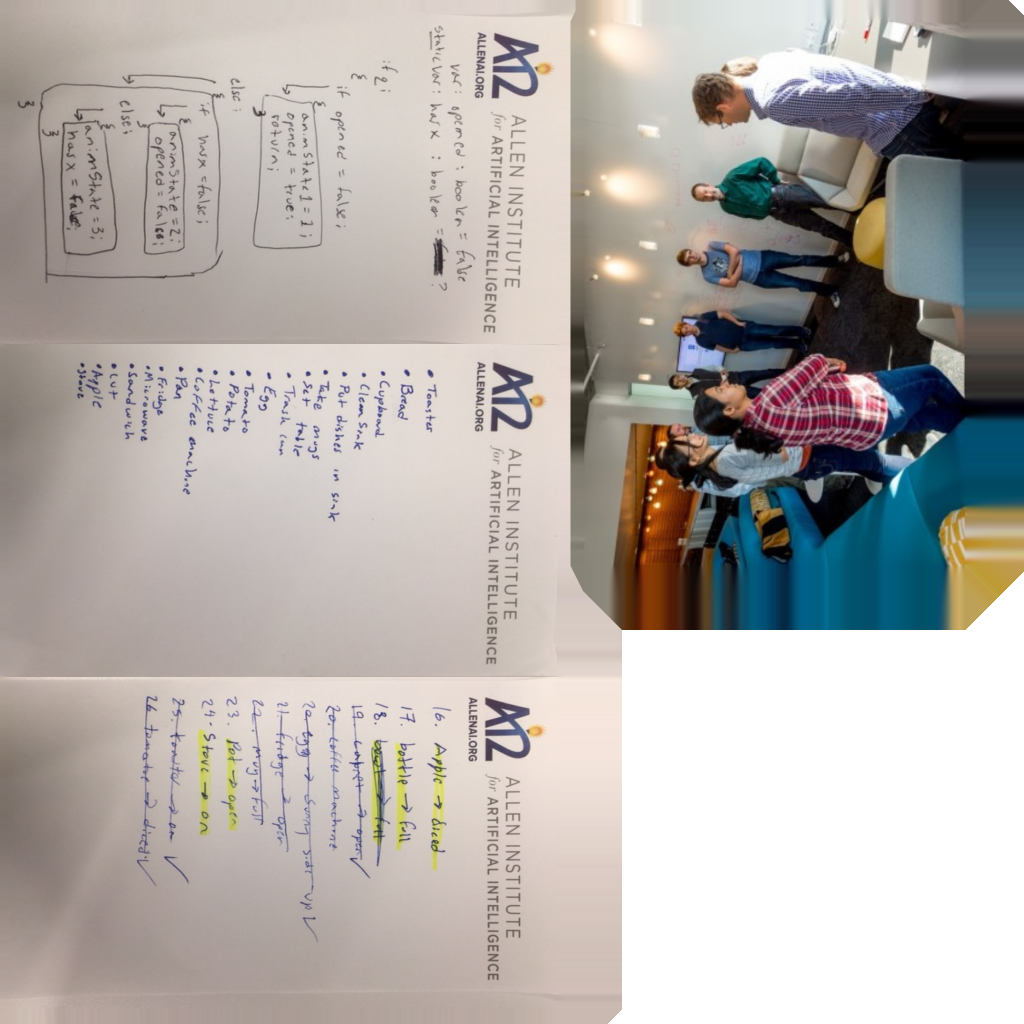 AI2
ALLENAI.ORG
ALLEN INSTITUTE
for ARTIFICIAL INTELLIGENCE
var: opened : boolen = false
static var : has x : boolen = ?
if 2 ;
{
if opened = false;
{
animState 1 = 1;
opened = true;
return;
}
else ;
{
if hasx = false;
{
animState = 2;
opened = false;
else ;
{
animState = 3;
has x =
}
}
AI2
ALLENAI.ORG
ALLEN INSTITUTE
for ARTIFICIAL INTELLIGENCE
• Toaster
• Bread
• Cupboard
• Clean Sink
• Put dishes in sink
• Take mugs
• Set table
• Trash can
• Egg
• Tomato
• Potato
• Lettuce
• Coffee machine
• Pan
• Fridge
• Microwave
• Sandwich
• Cut
• Apple
• Stove
AI2
ALLENAI.ORG
ALLEN INSTITUTE
for ARTIFICIAL INTELLIGENCE
16. Apple → diced
17. bottle → full
18. → full
19. cabinet → open ✓
20. coffee machine
20. egg → sunny side up ✓
21. fridge → open
22. mug → full
23. Pot → open
24. Stove → on
25. → on ✓
26 tomatoe → diced ✓